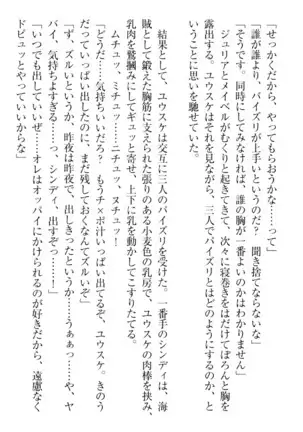 「せっかくだから、やってもらおうかな……って」
「誰が誰より、パイズリが上手いというのだ？　聞き捨てならないな」
「そうです。同時にしてみなければ、誰の胸が一番よいのかはわかりません」
　ジュリアとメイベルがむくりと起きてきて、次々に寝巻きをはだけてぽろんと胸を
露出する。ユウスケはそれを見ながら、三人でパイズリとはどのようにするのだろう
かということに思いを馳せていた。
　結果として、ユウスケは交互に三人のパイズリを受けた。一番手のシンディは、海
賊として鍛えた胸筋に支えられた張りのある小麦色の乳房で、ユウスケの肉棒を挟み、
乳肉を鷲掴みにしてギュッと寄せ、上下に乳を動かしてこすりたてる。
　ムチュッ、ミチュッ……ニチュッ、ヌチュッ！
「どうだ……気持ちいいだろ？　もうチ×ポ汁いっぱい出てるぞ、ユウスケ。きのう
だっていっぱい出したのに、まだ残しておくなんてズルいぞ」
「ず、ズルいというか、昨夜は昨夜で、出しきったというか……うあぁっ……や、ヤ
バイ、気持ちよすぎる……っ、シンディ、出すぞっ……！」
「いつでも出していいぜ……オレはオッパイにかけられるのが好きだから、遠慮なく
ドピュッとやっていいからな」